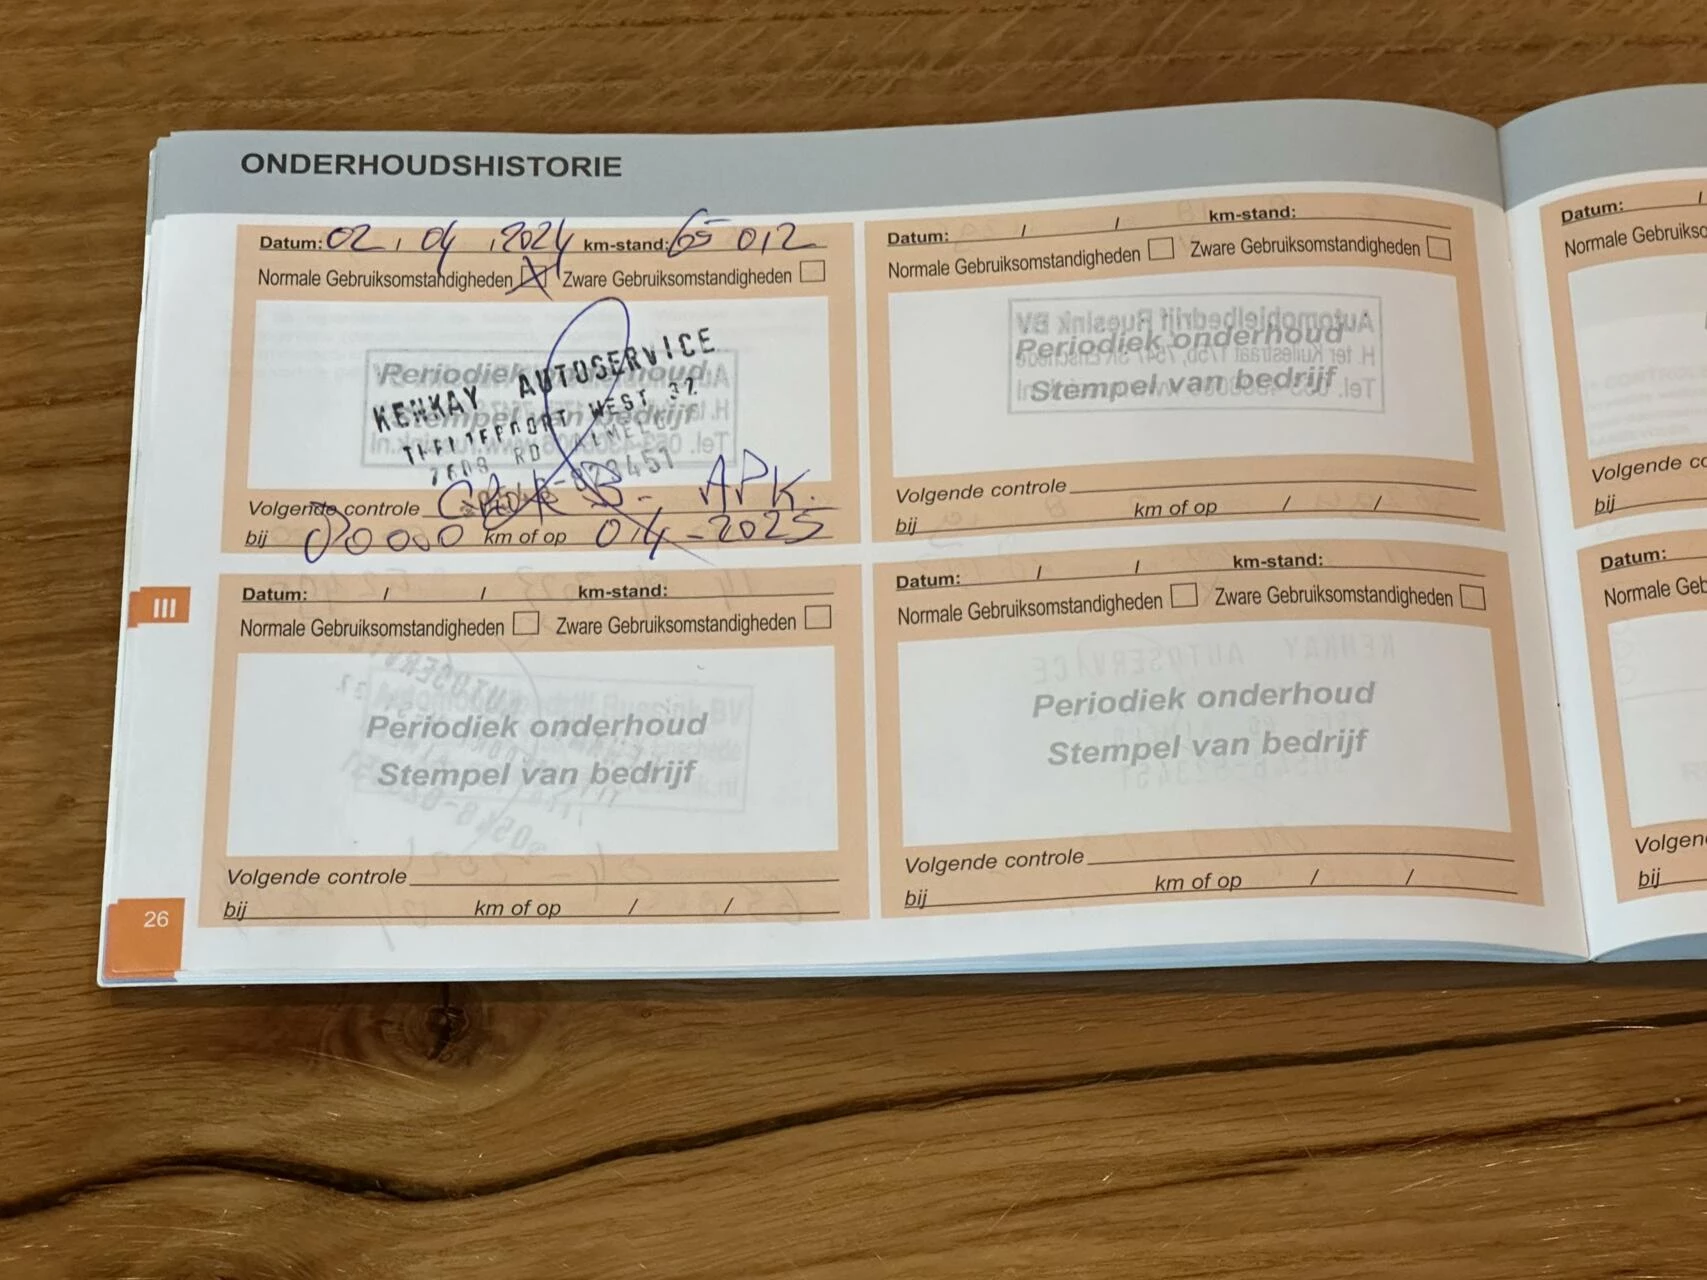 ONDERHOUDSHISTORIE
Datum: 02 / 04 / 2024 km-stand: 65 012
Normale Gebruiksomstandigheden Zware Gebruiksomstandigheden
Periodiek onderhoud
Stempel van bedrijf
KENKAY AUTOSERVICE
WEST 37
RD ALMELO
0546-823451
Volgende controle B- APK.
bij 80000 km of op 04-2025
Datum: / / km-stand:
Normale Gebruiksomstandigheden Zware Gebruiksomstandigheden
Periodiek onderhoud
Stempel van bedrijf
Volgende controle
bij km of op / /
III
Datum: / / km-stand:
Normale Gebruiksomstandigheden Zware Gebruiksomstandigheden
Periodiek onderhoud
Stempel van bedrijf
Volgende controle
bij km of op / /
Datum: / / km-stand:
Normale Gebruiksomstandigheden Zware Gebruiksomstandigheden
Periodiek onderhoud
Stempel van bedrijf
Volgende controle
bij km of op / /
26
Datum: /
Normale
Volgende
bij
Datum:
Normale
bij